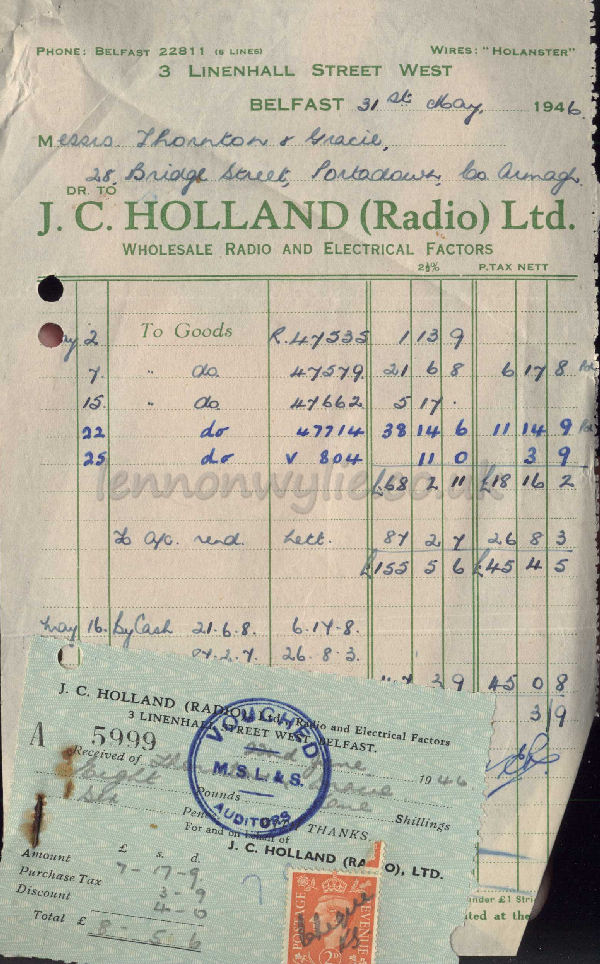 PHONE: BELFAST 22811 (6 LINES) WIRES: "HOLANSTER"
3 LINENHALL STREET WEST
BELFAST 31st May, 1946.
Messrs Thornton & Gracie,
28, Bridge Street, Portadown, Co Armagh.
DR. TO
J. C. HOLLAND (Radio) Ltd.
WHOLESALE RADIO AND ELECTRICAL FACTORS
2½% P.TAX NETT
2 To Goods R.47535 1 13 9
7. " do 47579 21 6 8 6 17 8
15. " do 47662 5 17 .
22 do 47714 38 14 6 11 14 9
25 do V 804 11 0 3 9
lennonwylie.co.uk
£68 2 11 £18 16 2
To a/c. rend. Lett. 87 2 7 26 8 3
£155 5 6 £45 4 5
May 16. By Cash 21.6.8. 6.17.8.
2.7. 26.8.3.
3 9 45 0 8
3 9
J. C. HOLLAND (RADIO) Ltd., Radio and Electrical Factors
3 LINENHALL STREET WEST, BELFAST.
A 5999 June 1946
Received of Thornton & Gracie
Eight Pounds Shillings
Six Pence
VOUCHED
M.S.L. & S.
AUDITORS
THANKS,
For and on behalf of
J. C. HOLLAND (RADIO), LTD.
£ s. d.
Amount 7-17-9.
Purchase Tax 3-9
Discount 4-0
Total £ 8-5-6
POSTAGE REVENUE
Cheque
2D
under £1
at the